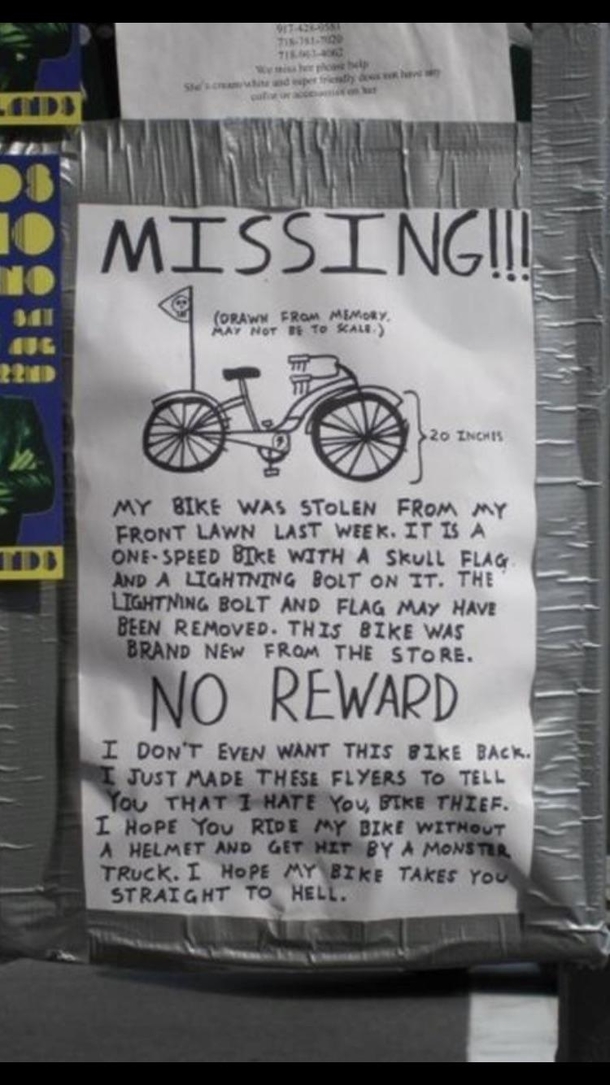 917-428-0581
718-781-7020
718-963-4062
We miss her please help
She's cream/white and super friendly does not have any
collar or accessories on her
ANDS
OS
IO
NO
SAT
AUG
22ND
NDS
MISSING!!!
(DRAWN FROM MEMORY.
MAY NOT BE TO SCALE.)
20 INCHES
MY BIKE WAS STOLEN FROM MY
FRONT LAWN LAST WEEK. IT IS A
ONE-SPEED BIKE WITH A SKULL FLAG
AND A LIGHTNING BOLT ON IT. THE
LIGHTNING BOLT AND FLAG MAY HAVE
BEEN REMOVED. THIS BIKE WAS
BRAND NEW FROM THE STORE.
NO REWARD
I DON'T EVEN WANT THIS BIKE BACK.
I JUST MADE THESE FLYERS TO TELL
YOU THAT I HATE YOU, BIKE THIEF.
I HOPE YOU RIDE MY BIKE WITHOUT
A HELMET AND GET HIT BY A MONSTER
TRUCK. I HOPE MY BIKE TAKES YOU
STRAIGHT TO HELL.